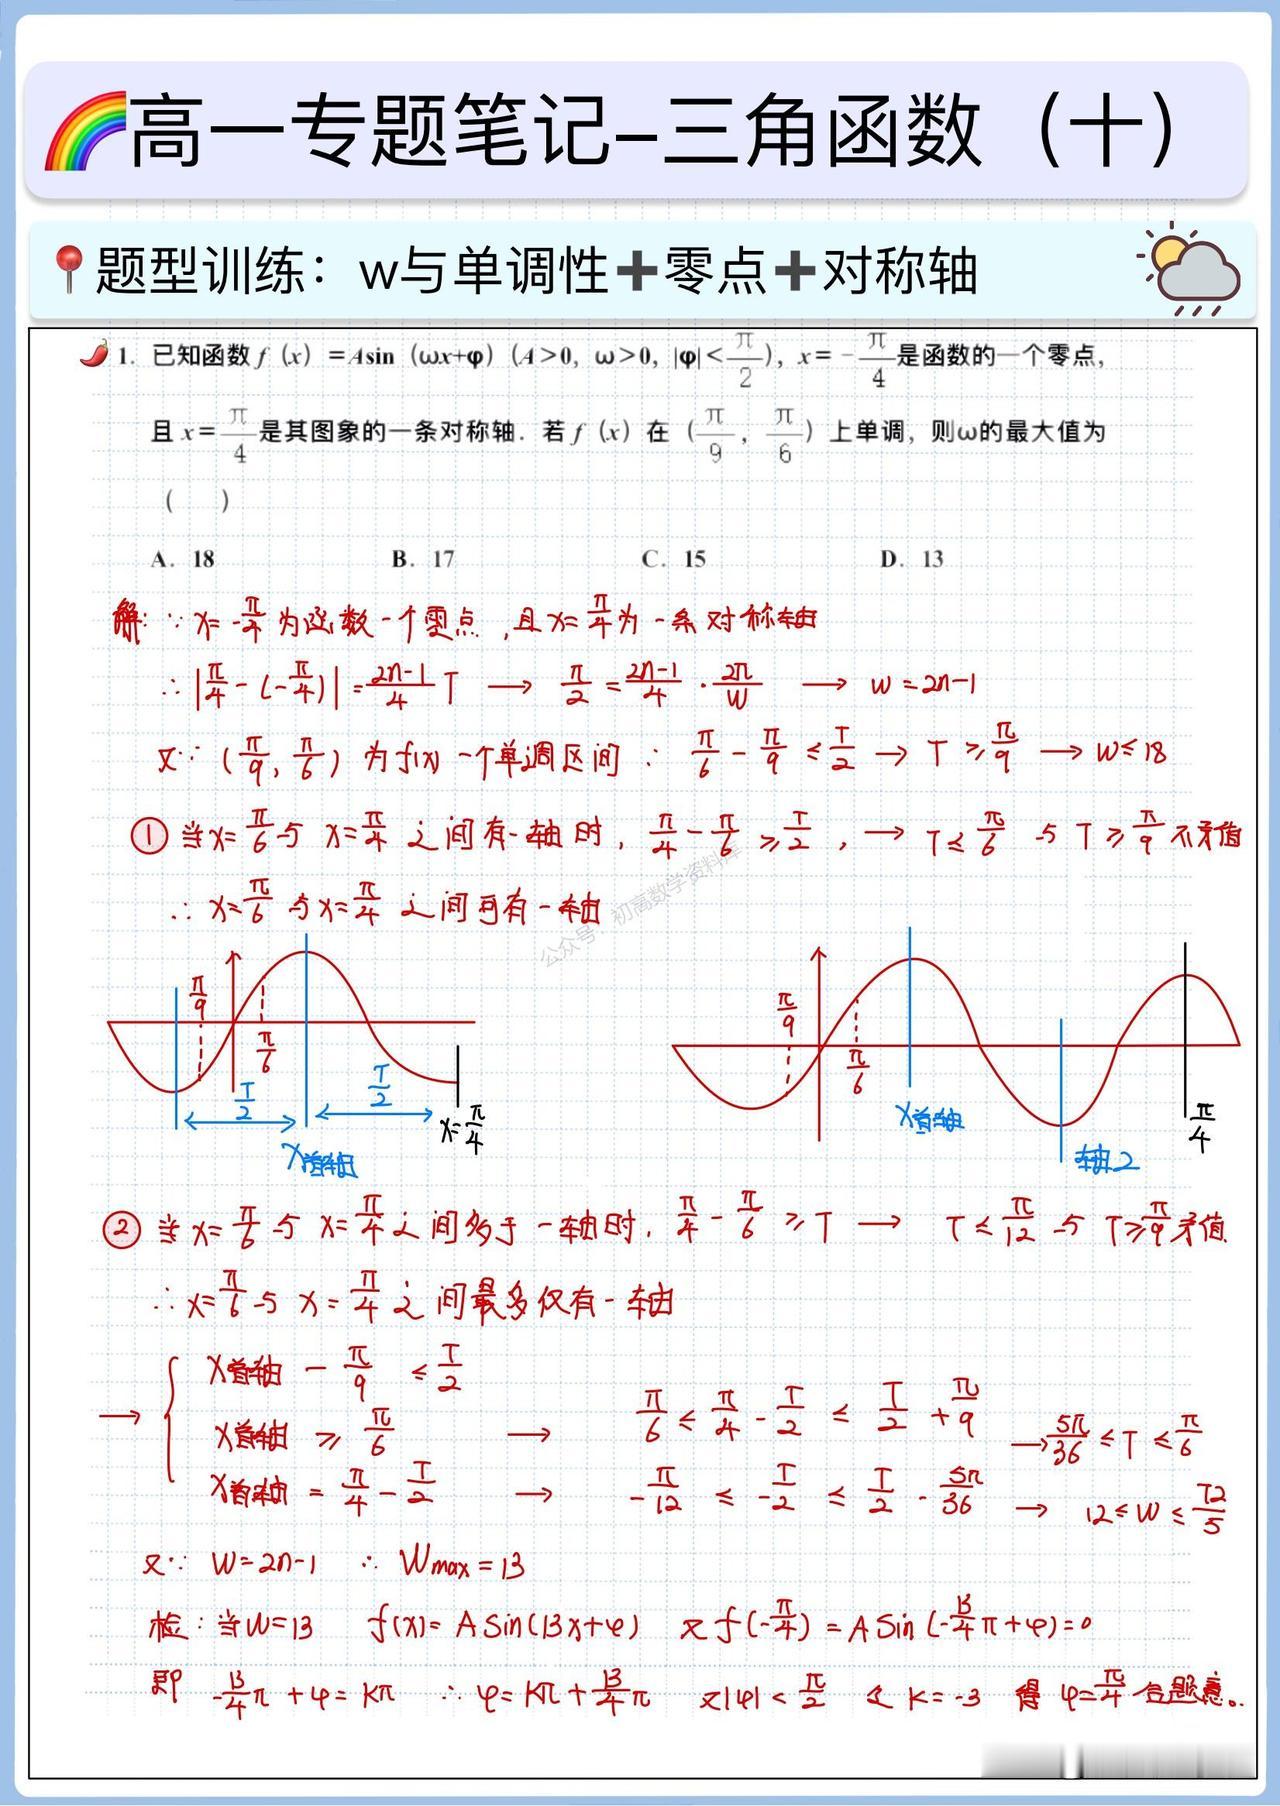 高一专题笔记–三角函数（十）
题型训练：w与单调性➕零点➕对称轴
1. 已知函数 f（x）=Asin（ωx+φ）（A>0，ω>0，|φ|<π/2），x= -π/4是函数的一个零点，
且 x=π/4是其图象的一条对称轴．若 f（x）在（π/9，π/6）上单调，则ω的最大值为
（ ）
A．18 B．17 C．15 D．13
解：∵ x=-π/4 为函数一个零点，且x=π/4为一条对称轴
∴ |π/4-(-π/4)|=(2n-1)/4 T → π/2=(2n-1)/4·2π/w → w=2n-1
又∵ (π/9，π/6) 为f(x)一个单调区间 ： π/6-π/9≤T/2 → T≥π/9 → w≤18
① 当x=π/6与 x=π/4 之间有一轴时，π/4-π/6≥T/2， → T≤π/6 与 T≥π/9 不矛值
∴ x=π/6 与x=π/4 之间可有一轴
公众号：初高数学资料库
π/9 π/6 T/2 T/2 x=π/4 x首轴
π/9 π/6 x首轴 轴2 π/4
② 当x=π/6与 x=π/4之间多于一轴时，π/4-π/6≥T → T≤π/12 与 T≥π/9矛值
∴x=π/6与 x=π/4 之间最多仅有一轴
→ { x首轴 - π/9 ≤ T/2
x首轴 ≥ π/6 → π/6 ≤ π/4-T/2 ≤ T/2+π/9 → 5π/36 ≤T ≤π/6
x首轴 = π/4-T/2 → -π/12 ≤ -T/2 ≤ T/2-5π/36 → 12≤w≤72/5
又∵ w=2n-1 ∴ Wmax=13
检：当w=13 f(x)= ASin(13x+φ) 又f(-π/4)=ASin(-13/4π+φ)=0
即 -13/4π+φ=kπ ∴ φ=kπ+13/4π 又|φ|<π/2 令k=-3 得 φ=π/4 合题意。